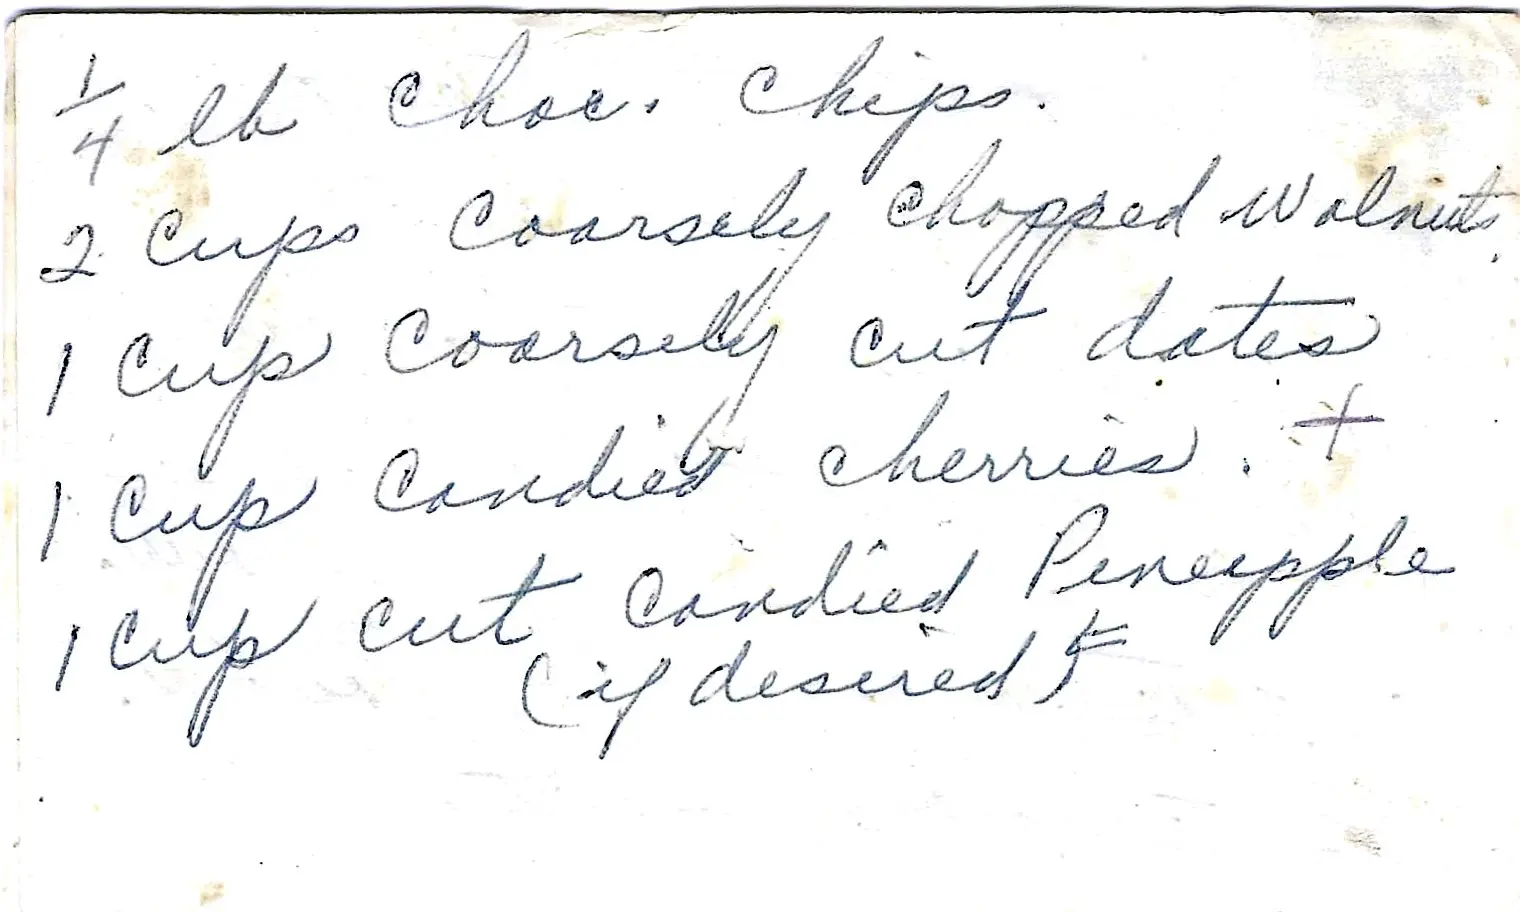 1/4 lb choc. chips.
2 cups coarsely chopped walnuts.
1 cup coarsely cut dates
1 cup candied cherries. +
1 cup cut candied Pineapple
(if desired)